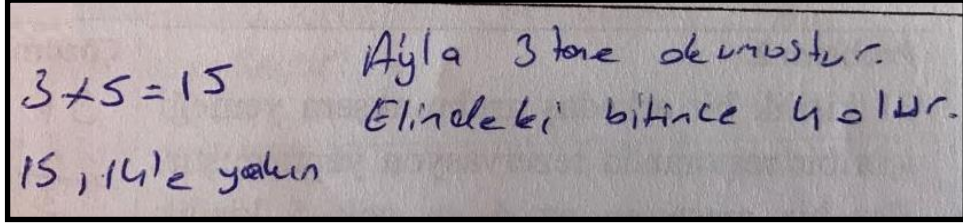 3x5=15
15, 14'e yakın
Ayla 3 tane okumuştur.
Elindeki bitince 4 olur.